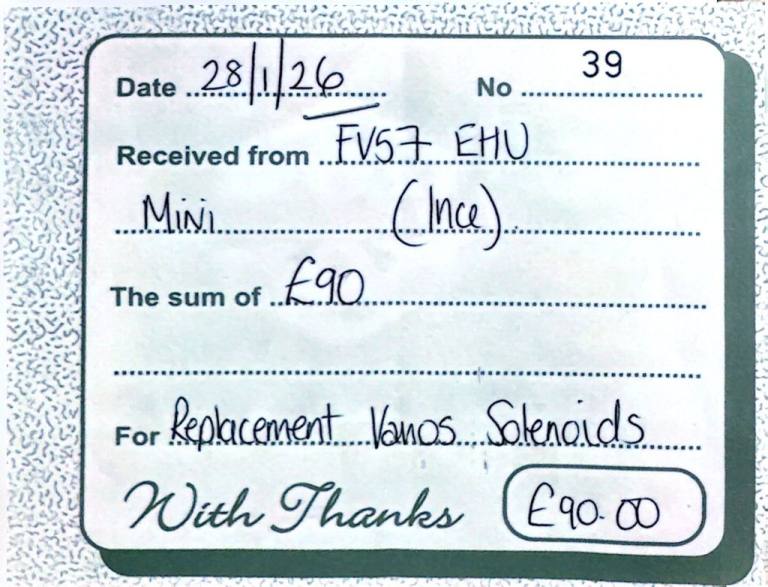 Date 28/1/26 No 39
Received from FV57 EHU
Mini (Ince).
The sum of £90
For Replacement Vanos Solenoids
With Thanks £90.00